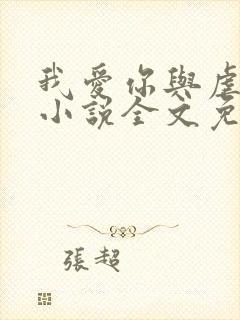 我愛你與虐
小說全文免
張超